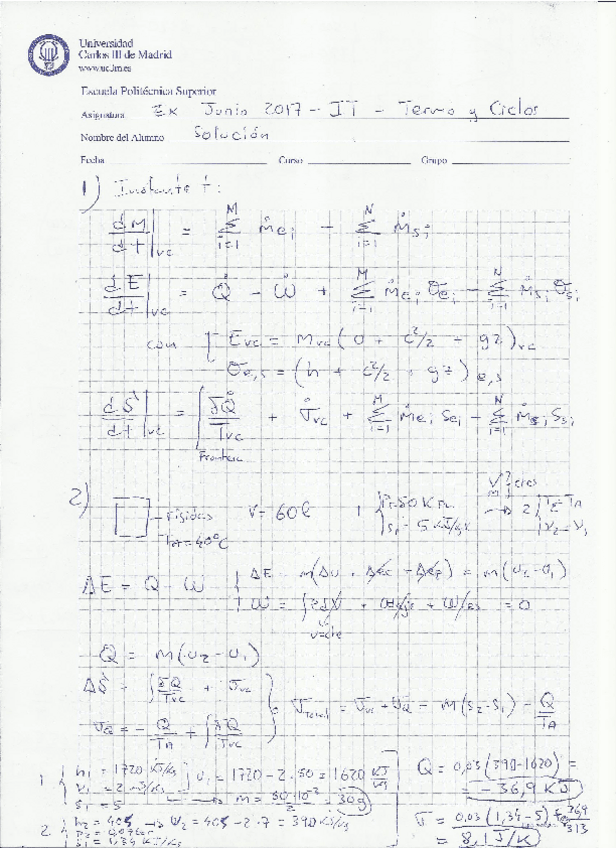 Universidad
Carlos III de Madrid
www.uc3m.es
Escuela Politécnica Superior
Asignatura Ex Junio 2017 - IT - Termo y Ciclos
Nombre del Alumno Solución
Fecha Curso Grupo
1) Instante t:
dM/dt|vc = Σ(i=1..M) ṁei - Σ(i=1..N) ṁsi
dE/dt|vc = Q̇ - Ẇ + Σ(i=1..M) ṁei θei - Σ(i=1..N) ṁsi θsi
con { Evc = mvc (u + c²/2 + gz)vc
θe,s = (h + c²/2 + gz)e,s
dS/dt|vc = ∫ δQ̇/Tvc + σ̇vc + Σ(i=1..M) ṁei sei - Σ(i=1..N) ṁsi ssi
Frontera
2) rígidas V = 60 l 1 { P1 = 50 kPa
s1 = 5 kJ/kgK → 2 { T2 = TA
v2 = v1
TA = 40°C
V, m ctes
ΔE = Q - W { ΔE = m(Δu + Δec + Δez) = m(u2 - u1)
W = ∫PdV = 0
v=cte
Q = m(u2 - u1)
ΔS = ∫ δQ/Tvc + σvc
σQ = - Q/TA + ∫ δQ/Tvc
σTotal = σvc + σQ = m(s2 - s1) - Q/TA
1 { h1 = 1720 kJ/kg
v1 = 2 m³/kg
s1 = 5
u1 = 1720 - 2·50 = 1620 kJ/kg
→ m = 60·10⁻³/2 = 30g
2 { h2 = 405 → u2 = 405 - 2·7 = 390 kJ/kg
s1 = 1,34 kJ/kgK
Q = 0,03 (390 - 1620) =
= - 36,9 kJ
σ = 0,03 (1,34 - 5) + 36,9/313
= 8,1 J/K